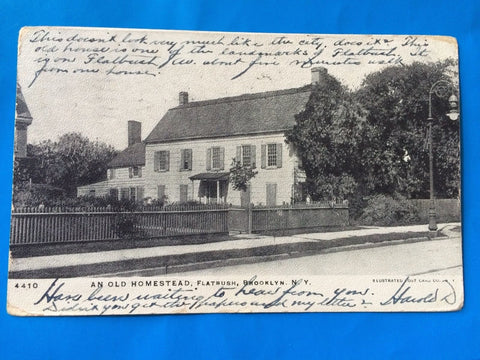 This doesn't look very much like the city, does it? This
old house is one of the landmarks of Flatbush. It
is on Flatbush Av. about five minutes walk
from our house.
4410 AN OLD HOMESTEAD, FLATBUSH, BROOKLYN, N. Y. ILLUSTRATED POST CARD CO., N. Y.
Have been waiting to hear from you.
Didn't you get the papers and my letter? Harold D